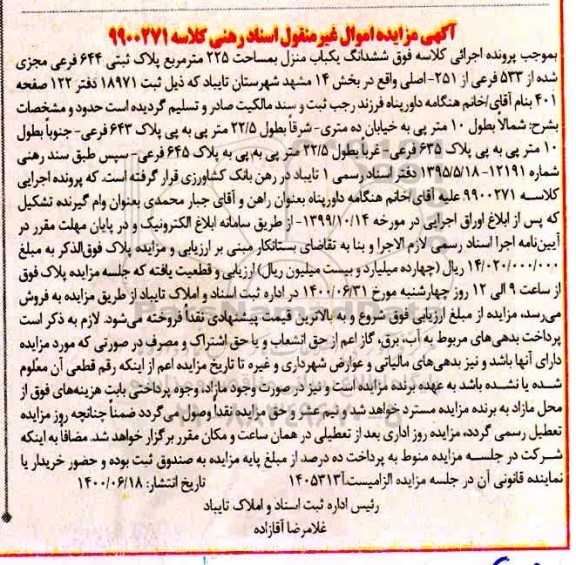 آگهی مزایده اموال غیر منقول اسناد رهنی کلاسه ۹۹۰۰۲۷۱
بموجب پرونده اجرائی کلاسه فوق ششدانگ یکباب منزل بمساحت ۲۲۵ مترمربع پلاک ثبتی ۶۴۴ فرعی مجزی
شده از ۵۳۳ فرعی از ۲۵۱- اصلی واقع در بخش ۱۴ مشهد شهرستان تایباد که ذیل ثبت ۱۸۹۷۱ دفتر ۱۲۲ صفحه
۴۰۱ بنام آقای/خانم هنگامه داورپناه فرزند رجب ثبت و سند مالکیت صادر و تسلیم گردیده است حدود و مشخصات
بشرح: شمالاً بطول ۱۰ متر پی به خیابان ده متری- شرقاً بطول ۲۲/۵ متر پی به پی پلاک ۶۴۳ فرعی- جنوباً بطول
۱۰ متر پی به پی پلاک ۶۳۵ فرعی- غرباً بطول ۲۲/۵ متر پی به پی به پلاک ۶۴۵ فرعی- سپس طبق سند رهنی
شماره ۱۲۱۹۱- ۱۳۹۵/۵/۱۸ دفتر اسناد رسمی ۱ تایباد در رهن بانک کشاورزی قرار گرفته است. که پرونده اجرایی
کلاسه ۹۹۰۰۲۷۱ علیه آقای/خانم هنگامه داورپناه بعنوان راهن و آقای جبار محمدی بعنوان وام گیرنده تشکیل
که پس از ابلاغ اوراق اجرایی در مورخه ۱۳۹۹/۱۰/۱۴- از طریق سامانه ابلاغ الکترونیک و در پایان مهلت مقرر در
آیین‌نامه اجرا اسناد رسمی لازم الاجرا و بنا به تقاضای بستانکار مبنی بر ارزیابی و مزایده پلاک فوق‌الذکر به مبلغ
۱۴/۰۲۰/۰۰۰/۰۰۰ ریال (چهارده میلیارد و بیست میلیون ریال) ارزیابی و قطعیت یافته که جلسه مزایده پلاک فوق
از ساعت ۹ الی ۱۲ روز چهارشنبه مورخ ۱۴۰۰/۰۶/۳۱ در اداره ثبت اسناد و املاک تایباد از طریق مزایده به فروش
می‌رسد، مزایده از مبلغ ارزیابی فوق شروع و به بالاترین قیمت پیشنهادی نقداً فروخته می‌شود. لازم به ذکر است
پرداخت بدهی‌های مربوط به آب، برق، گاز اعم از حق انشعاب و یا حق اشتراک و مصرف در صورتی که مورد مزایده
دارای آنها باشد و نیز بدهی‌های مالیاتی و عوارض شهرداری و غیره تا تاریخ مزایده اعم از اینکه رقم قطعی آن معلوم
شده یا نشده باشد به عهده برنده مزایده است و نیز در صورت وجود مازاد، وجوه پرداختی بابت هزینه‌های فوق از
محل مازاد به برنده مزایده مسترد خواهد شد و نیم عشر و حق مزایده نقداً وصول می‌گردد ضمناً چنانچه روز مزایده
تعطیل رسمی گردد، مزایده روز اداری بعد از تعطیلی در همان ساعت و مکان مقرر برگزار خواهد شد. مضافا به اینکه
شرکت در جلسه مزایده منوط به پرداخت ده درصد از مبلغ پایه مزایده به صندوق ثبت بوده و حضور خریدار یا
نماینده قانونی آن در جلسه مزایده الزامیست. آ۱۴۰۵۳۱۳ تاریخ انتشار: ۱۴۰۰/۰۶/۱۸
رئیس اداره ثبت اسناد و املاک تایباد
غلامرضا آقازاده